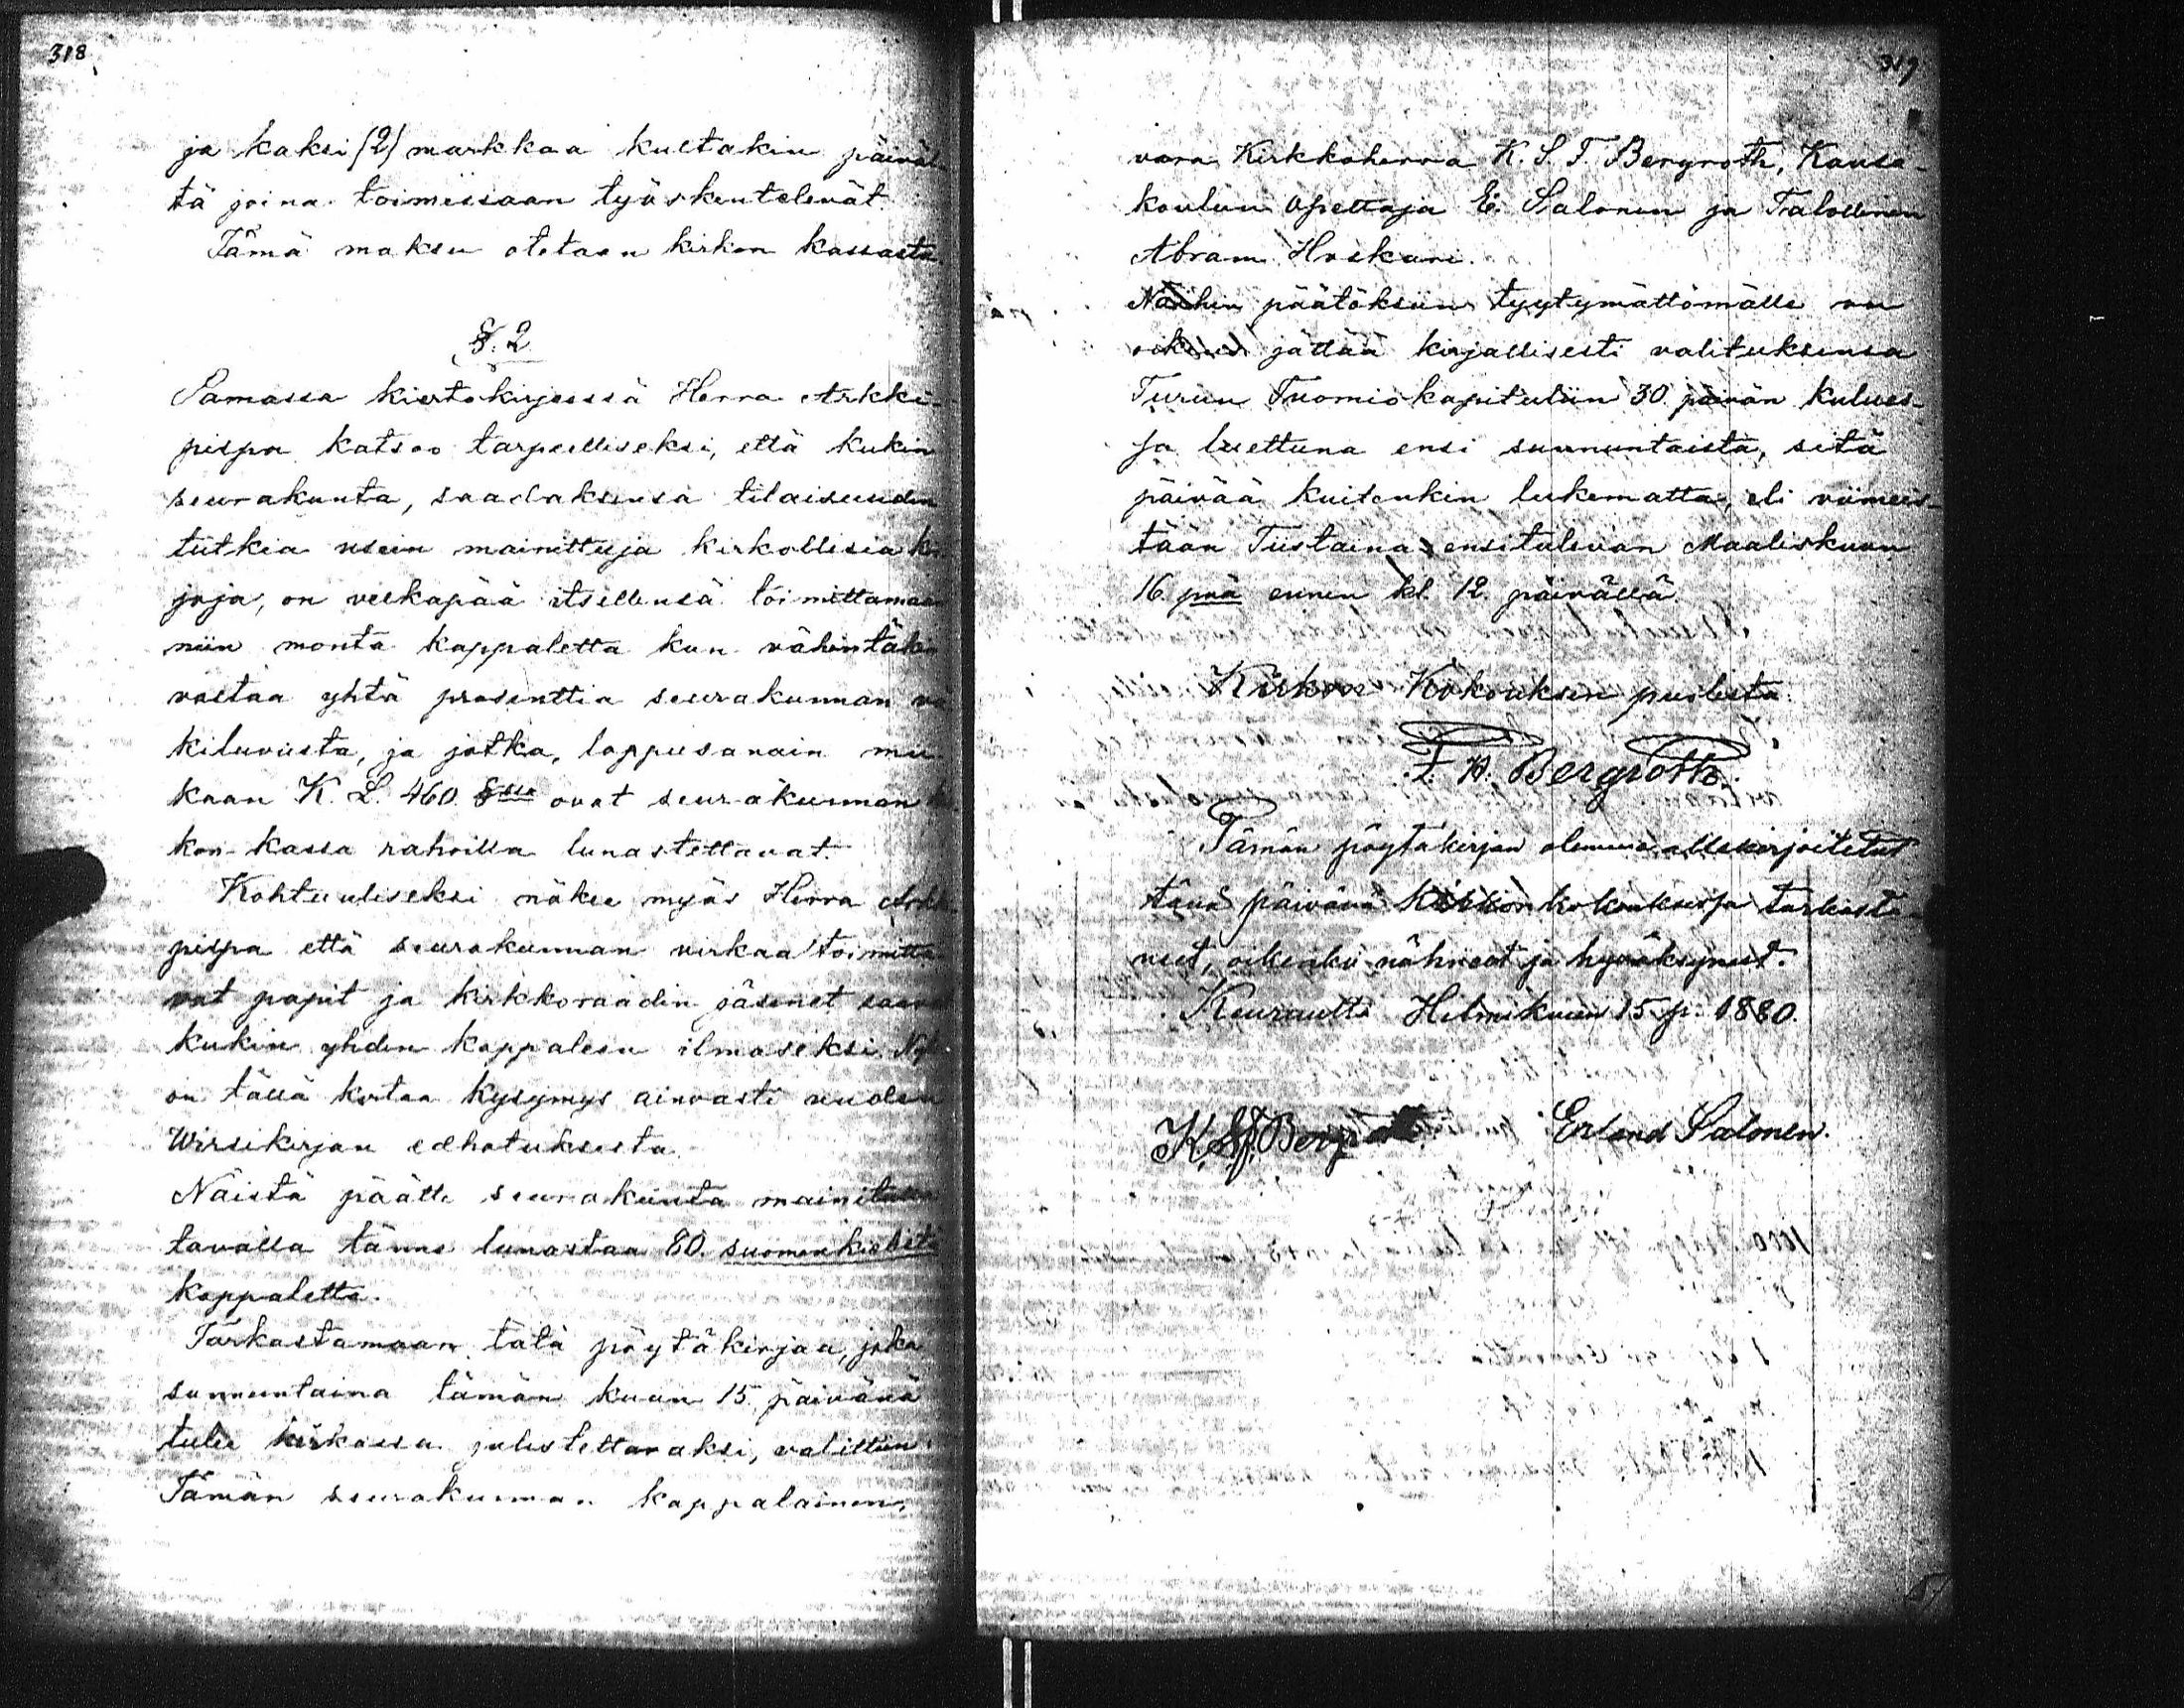 318
ja kaksi (2) markkaa kultakin päiväl
tä joina toimissaan työskentelevät.
Tämä maksu otetaan kirkon kassasta.
§. 2
Samassa kiertokirjeessä Herra Arkki-
pispa katsoo tarpeelliseksi, että kukin
seurakunta, saadaksensa tilaisuuden
tutkia usein mainittuja kirkollisia kir
joja, on velkapää itsellensä toimittamaan
niin monta kappaletta kun vähintäkin
vastaa yhtä prosenttia seurakunnan vä
kiluvusta, ja jotka, loppusanain mu
kaan K. L. 460. §ssa ovat seurakunnan
kon kassa rahoilla lunastettavat.
Kohtuuliseksi näkee myös Herra Arkki
pispa että seurakunnan virkaa toimitta
vat papit ja kirkkoraadin jäsenet saavat
kukin yhden kappaleen ilmaseksi. Nyt
on tällä kertaa kysymys ainoasti uuden
Wirsikirjan edhotuksesta.
Näistä päätti seurakunta mainitulla
tavalla tänne lunastaa 80. suomenkielistä
kappaletta.
Tarkastamaan tätä pöytäkirjaa, joka
sunnuntaina tämän kuun 15 päivänä
tulee kirkossa julistettavaksi, valittiin
Tämän seurakunnan kappalainen,
319
vara Kirkkoherra K. S. T. Bergroth, Kansa-
koulun Opettaja E. Salonen ja Talollinen
Abram Hoskari.
Näihin päätöksiin tyytymättömälle on
oikeus jättää kirjallisesti valituksensa
Turun Tuomiokapituliin 30 päivän kulues-
sa luettuna ensi sunnuntaista, sitä
päivää kuitenkin lukematta, eli viimeis-
tään Tiistaina ensitulevan Maaliskuun
16. pnä ennen kl. 12. päivällä.
Kirkon Kokouksen puolesta
F. H. Bergroth.
Tämän pöytäkirjan olemme allekirjoitetut
tänä päivänä kirkon kokouksessa tarkasta-
neet, oikeaksi nähneet ja hyväksyneet.
Keuruulla Helmikuun 15 p. 1880.
K. S. T. Bergroth
Erland Salonen.